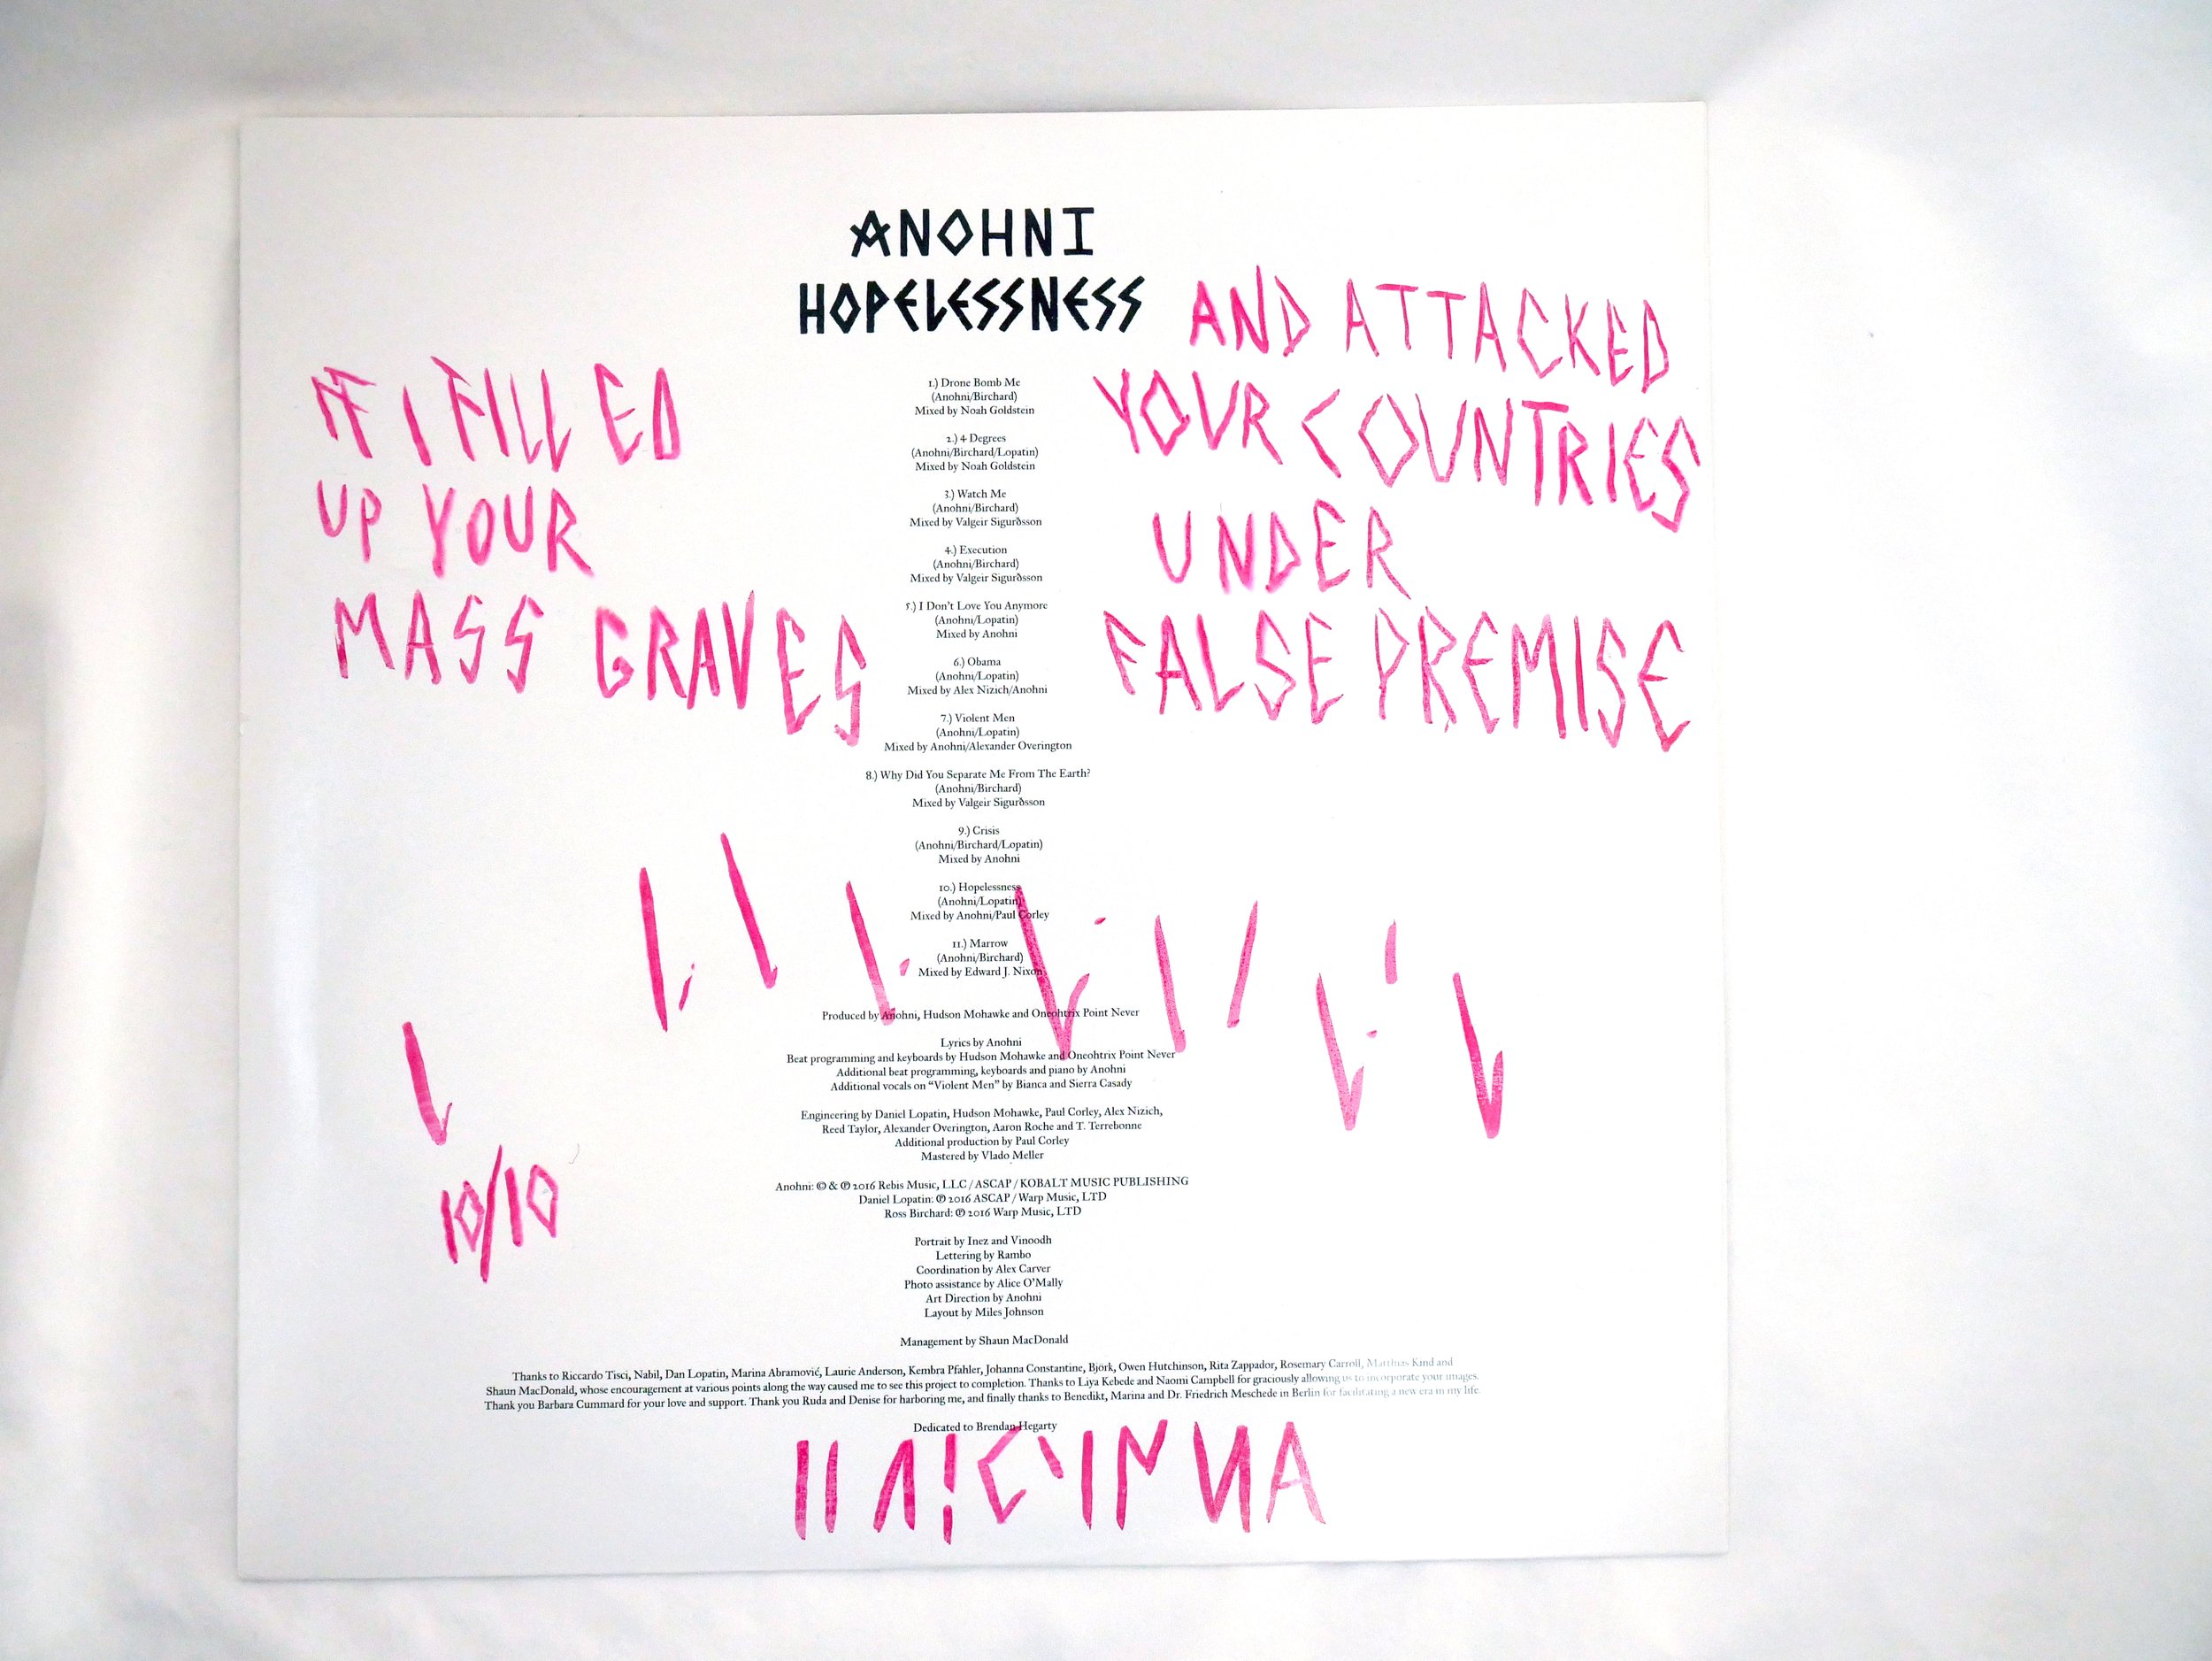 ANOHNI
HOPELESSNESS
IF I FILLED
UP YOUR
MASS GRAVES
AND ATTACKED
YOUR COUNTRIES
UNDER
FALSE PREMISE
1.) Drone Bomb Me
(Anohni/Birchard)
Mixed by Noah Goldstein
2.) 4 Degrees
(Anohni/Birchard/Lopatin)
Mixed by Noah Goldstein
3.) Watch Me
(Anohni/Birchard)
Mixed by Valgeir Sigurðsson
4.) Execution
(Anohni/Birchard)
Mixed by Valgeir Sigurðsson
5.) I Don't Love You Anymore
(Anohni/Lopatin)
Mixed by Anohni
6.) Obama
(Anohni/Lopatin)
Mixed by Alex Nizich/Anohni
7.) Violent Men
(Anohni/Lopatin)
Mixed by Anohni/Alexander Overington
8.) Why Did You Separate Me From The Earth?
(Anohni/Birchard)
Mixed by Valgeir Sigurðsson
9.) Crisis
(Anohni/Birchard/Lopatin)
Mixed by Anohni
10.) Hopelessness
(Anohni/Lopatin)
Mixed by Anohni/Paul Corley
11.) Marrow
(Anohni/Birchard)
Mixed by Edward J. Nixon
Produced by Anohni, Hudson Mohawke and Oneohtrix Point Never
Lyrics by Anohni
Beat programming and keyboards by Hudson Mohawke and Oneohtrix Point Never
Additional beat programming, keyboards and piano by Anohni
Additional vocals on “Violent Men” by Bianca and Sierra Casady
Engineering by Daniel Lopatin, Hudson Mohawke, Paul Corley, Alex Nizich,
Reed Taylor, Alexander Overington, Aaron Roche and T. Terrebonne
Additional production by Paul Corley
Mastered by Vlado Meller
10/10
Anohni: © & ℗ 2016 Rebis Music, LLC / ASCAP / KOBALT MUSIC PUBLISHING
Daniel Lopatin: ℗ 2016 ASCAP / Warp Music, LTD
Ross Birchard: ℗ 2016 Warp Music, LTD
Portrait by Inez and Vinoodh
Lettering by Rambo
Coordination by Alex Carver
Photo assistance by Alice O'Mally
Art Direction by Anohni
Layout by Miles Johnson
Management by Shaun MacDonald
Thanks to Riccardo Tisci, Nabil, Dan Lopatin, Marina Abramović, Laurie Anderson, Kembra Pfahler, Johanna Constantine, Bjork, Owen Hutchinson, Rita Zappador, Rosemary Carroll, Matthias Kind and
Shaun MacDonald, whose encouragement at various points along the way caused me to see this project to completion. Thanks to Liya Kebede and Naomi Campbell for graciously allowing us to incorporate your images.
Thank you Barbara Cummard for your love and support. Thank you Ruda and Denise for harboring me, and finally thanks to Benedikt, Marina and Dr. Friedrich Meschede in Berlin for facilitating a new era in my life.
Dedicated to Brendan Hegarty